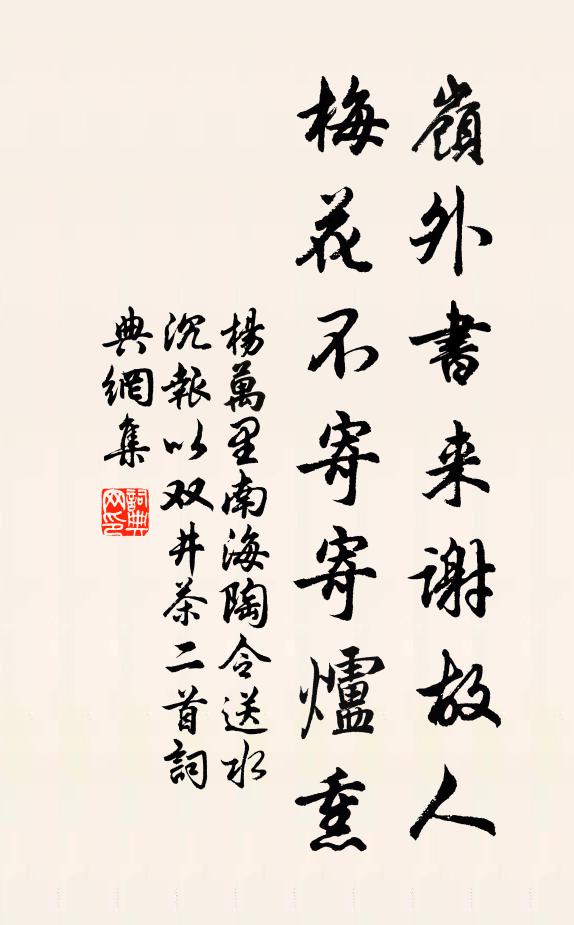 嶺外書来謝故人
梅花不寄寄爐熏
楊萬里南海陶令送水
沉報以双井茶二首詞
典網集
詞典
网印